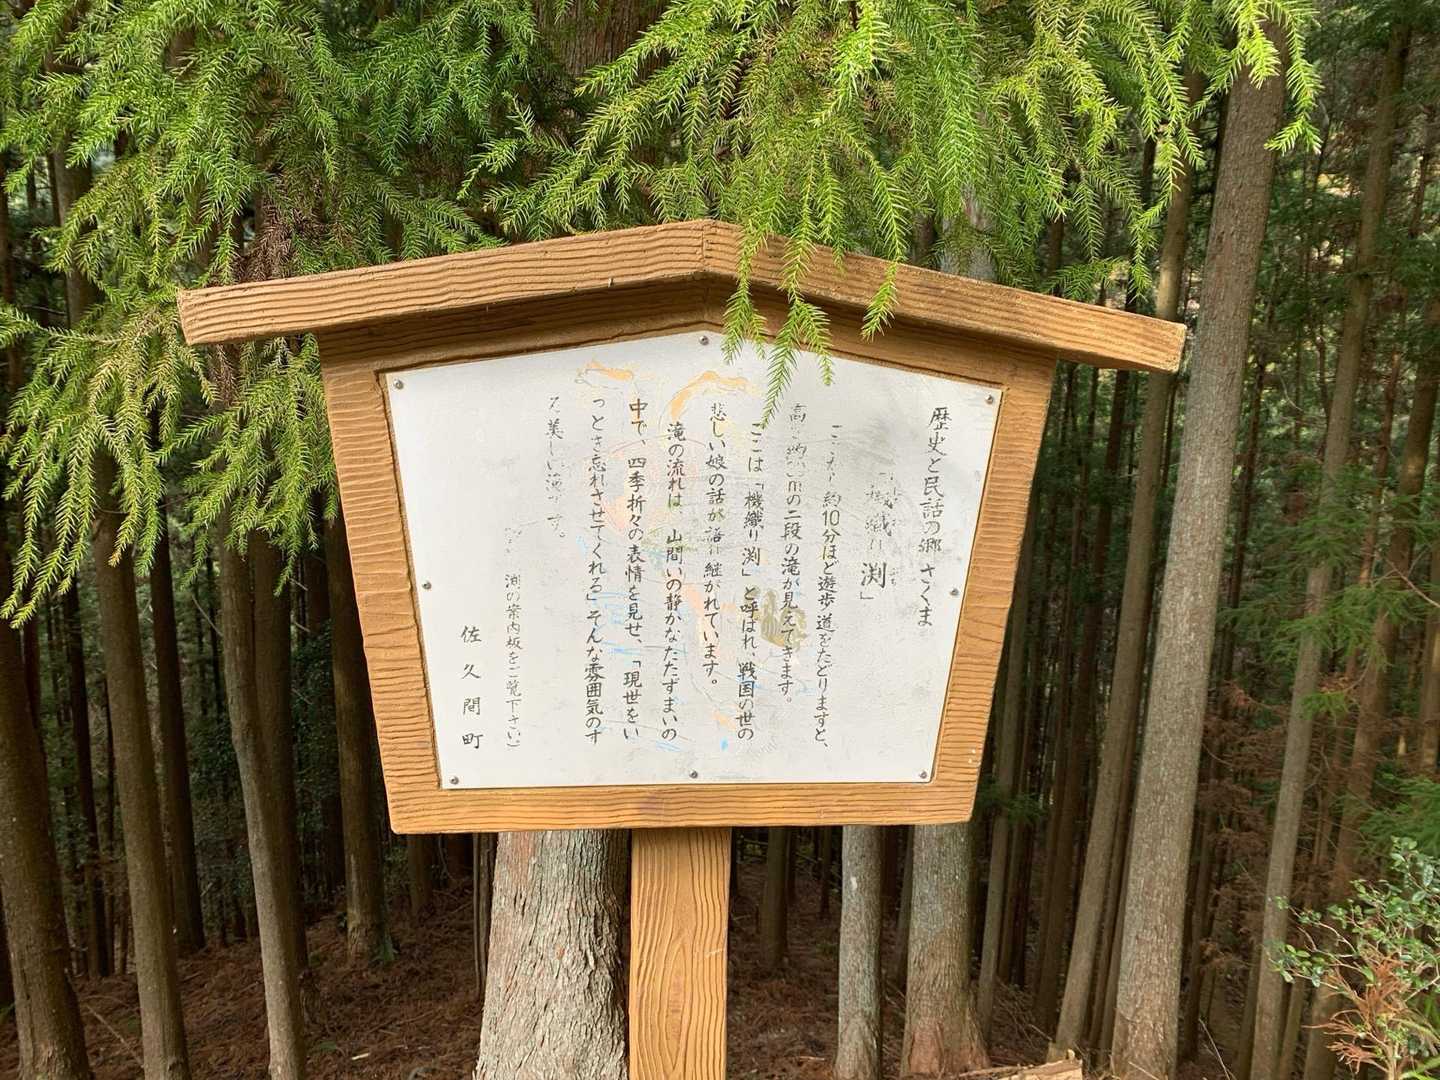 歴史と民話の郷 さくま
機織り渕」
ここから 約10分ほど遊歩道をたどりますと、
高さ 約 mの二段の滝が見えてきます。
ここは「機織り渕」と呼ばれ、戦国の世の
悲しい娘の話が語り継がれています。
滝の流れは、山間いの静かなたたずまいの
中で、四季折々の表情を見せ、「現世をい
っとき忘れさせてくれる」そんな雰囲気のす
る美しい滝です。
渕の案内板をご覧下さい)
佐久間町